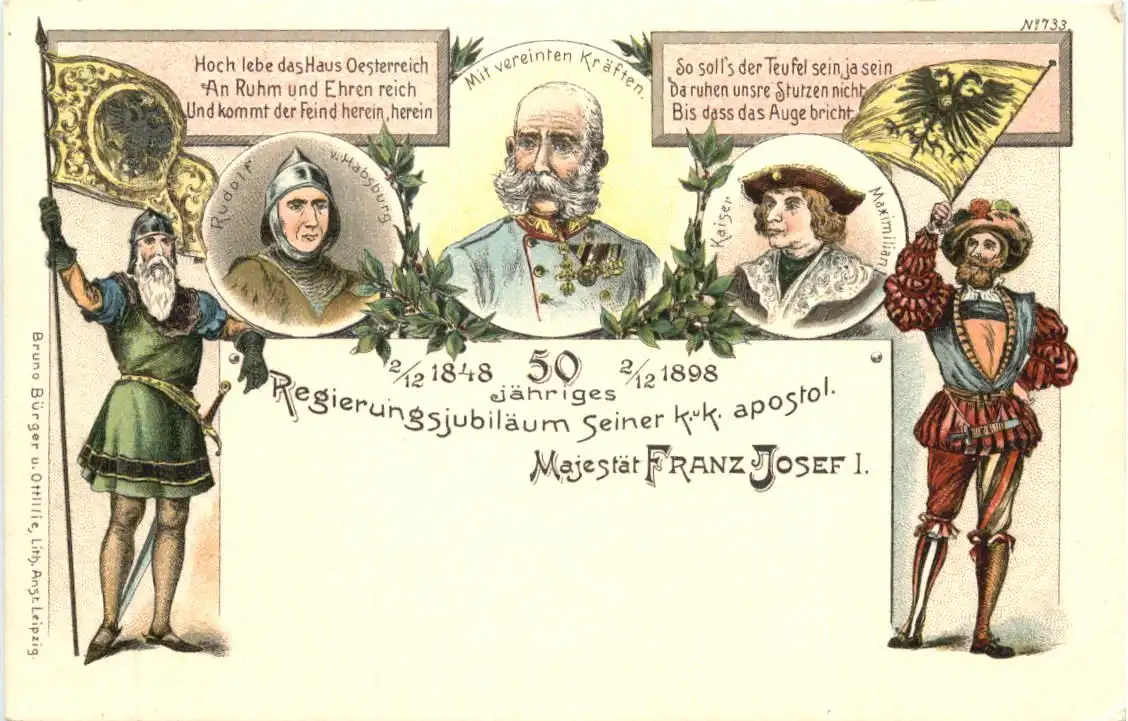 Nº 733.
Hoch lebe das Haus Oesterreich
An Ruhm und Ehren reich
Und kommt der Feind herein, herein
Mit vereinten Kräften.
So soll's der Teufel sein, ja sein
Da ruhen unsre Stutzen nicht
Bis dass das Auge bricht
Rudolf v. Habsburg
Kaiser Maximilian
2/12 1848 50 2/12 1898
jähriges
Regierungsjubiläum Seiner k. u. k. apostol.
Majestät FRANZ JOSEF I.
Bruno Bürger u. Ottillie, Lith. Anst. Leipzig.